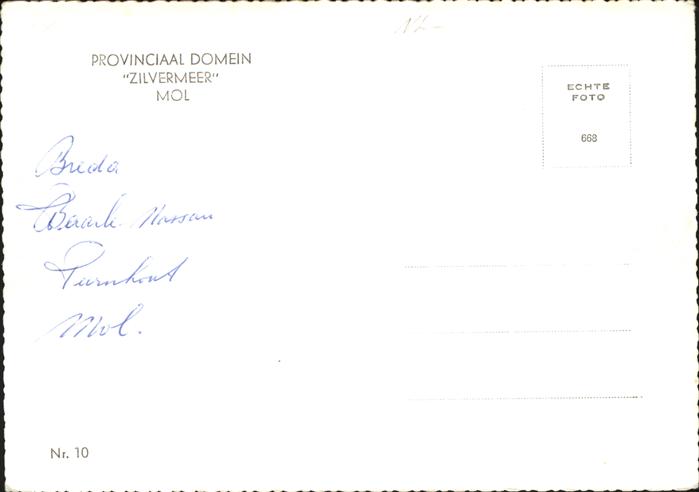 PROVINCIAAL DOMEIN
"ZILVERMEER"
MOL
ECHTE
FOTO
668
Breda
Baarle Nassau
Turnhout
Mol.
Nr. 10